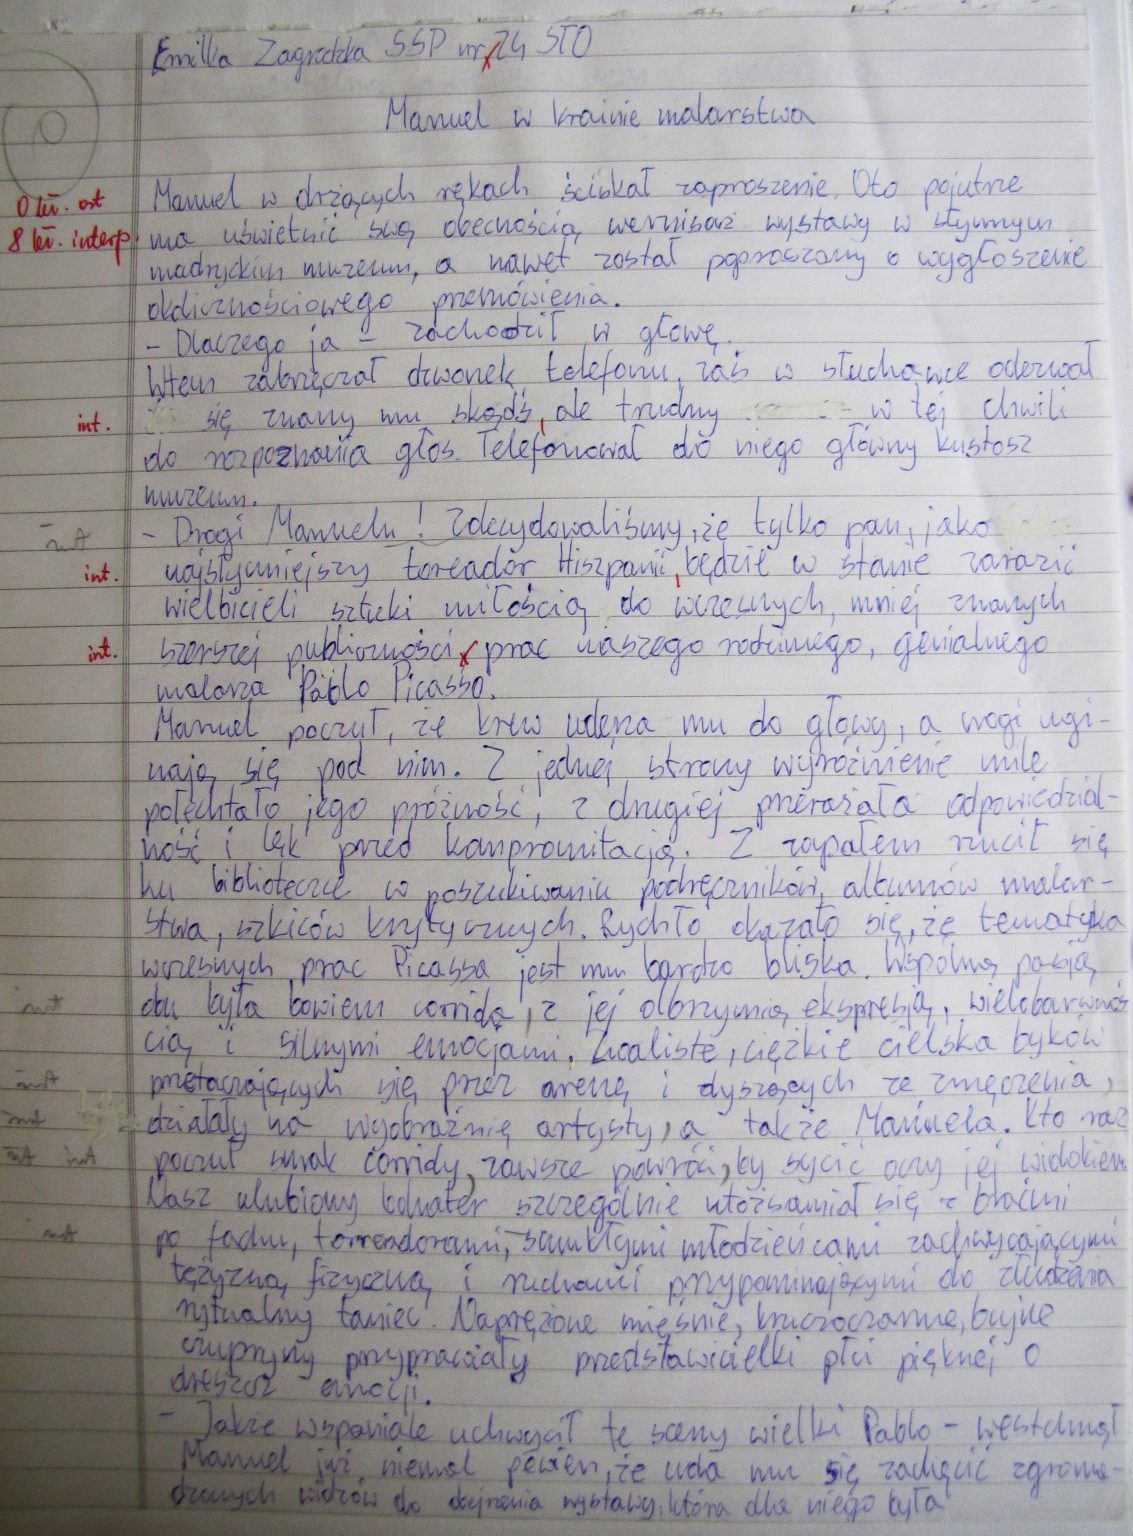 Emilka Zagrodzka SSP nr 24 STO
Manuel w krainie malarstwa
Manuel w drżących rękach ściskał zaproszenie. Oto pojutrze
0 bł. ort
8 bł. interp.
ma uświetnić swą obecnością wernisaż wystawy w słynnym
madryckim muzeum, a nawet został poproszony o wygłoszenie
okolicznościowego przemówienia.
- Dlaczego ja - zachodził w głowę.
Wtem zabrzęczał dzwonek telefonu, zaś w słuchawce odezwał
int.
się znany mu skądś, ale trudny w tej chwili
do rozpoznania głos. Telefonował do niego główny kustosz
muzeum.
int
- Drogi Manuelu! Zdecydowaliśmy, że tylko pan, jako
int.
najsłynniejszy toreador Hiszpanii, będzie w stanie zarazić
wielbicieli sztuki miłością do wczesnych, mniej znanych
int.
szerszej publiczności, prac naszego rodzimego, genialnego
malarza Pablo Picasso.
Manuel poczuł, że krew uderza mu do głowy, a nogi ugi-
nają się pod nim. Z jednej strony wyróżnienie mile
połechtało jego próżność, z drugiej przerażała odpowiedzial-
ność i lęk przed kompromitacją. Z zapałem rzucił się
ku bibliotece w poszukiwaniu podręczników, albumów malar-
stwa, szkiców krytycznych. Rychło okazało się, że tematyka
wczesnych prac Picassa jest mu bardzo bliska. Wspólną pasją
int
obu była bowiem corrida, z jej olbrzymią ekspresją, wielobarwnoś
cią i silnymi emocjami. Zwaliste, ciężkie cielska byków
int
przetaczających się przez arenę i dyszących ze zmęczenia,
int
działały na wyobraźnię artysty, a także Manuela. Kto raz
int int
poczuł smak corridy, zawsze powróci, by sycić oczy jej widokiem.
Nasz ulubiony bohater szczególnie utożsamiał się z braćmi
int
po fachu, torreadorami, smukłymi młodzieńcami zachwycającymi
tężyzną fizyczną i ruchami przypominającymi do złudzenia
rytualny taniec. Naprężone mięśnie, kruczoczarne, bujne
czupryny przyprawiały przedstawicielki płci pięknej o
dreszcz emocji.
- Jakże wspaniale uchwycił te sceny wielki Pablo - westchnął
Manuel już niemal pewien, że uda mu się zachęcić zgroma-
dzonych widzów do obejrzenia wystawy, która dla niego była